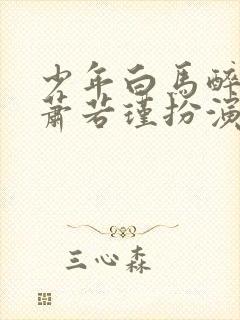 少年白马醉
萧若瑾扮演
三心森